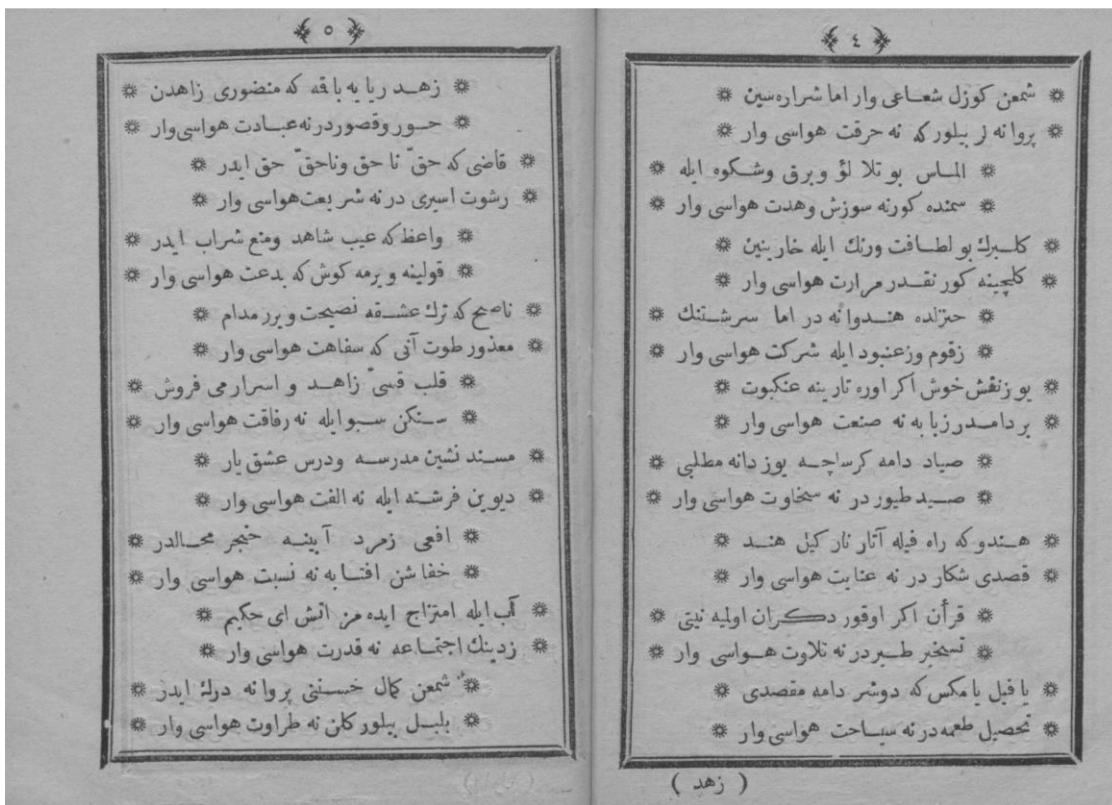 ٤
شمعن کوزل شعاعی وار اما شراره سین
پروانه لر بیلور که نه حرقت هواسی وار
الماس بو تلالؤ وبرق وشکوه ایله
سمنده کورنه سوزش وهدت هواسی وار
کلبرك بو لطافت ورنك ایله خار ینین
کلچینه کور نقدر مرارت هواسی وار
حنزلده هندوانه در اما سرشتنك
زقوم وزعنبود ایله شرکت هواسی وار
یوز نقش خوش اکر اوره تارینه عنکبوت
بر دامدر زبابه نه صنعت هواسی وار
صیاد دامه کرساچه یوز دانه مطلبی
صید طیور در نه سخاوت هواسی وار
هندو که راه فیله آتار نارکیل هند
قصدی شکار در نه عنایت هواسی وار
قرأن اکر اوقور دکران اولیه نیتی
تسخیر طیر در نه تلاوت هواسی وار
یا فیل یا مکس که دوشر دامه مقصدی
تحصیل طعمه در نه سیاحت هواسی وار
( زهد )
٥
زهد ریایه باقه که منضوری زاهدن
حور وقصور در نه عبادت هواسی وار
قاضی که حقّ نا حق وناحقّ حق ایدر
رشوت اسیری در نه شریعت هواسی وار
واعظ که عیب شاهد ومنع شراب ایدر
قولینه ویرمه کوش که بدعت هواسی وار
ناصح که ترك عشقه نصیحت ویرر مدام
معذور طوت آنی که سفاهت هواسی وار
قلب قسیّ زاهد و اسرار می فروش
سنکن سبو ایله نه رفاقت هواسی وار
مسند نشین مدرسه ودرس عشق یار
دیوین فرشته ایله نه الفت هواسی وار
افعی زمرد آیینه خنجر محالدر
خفاشن افتابه نه نسبت هواسی وار
آب ایله امتزاج ایده مز اتش ای حکیم
زدینك اجتماعه نه قدرت هواسی وار
شمعن کمال حسننی پروانه درك ایدر
بلبل بیلور کلن نه طراوت هواسی وار